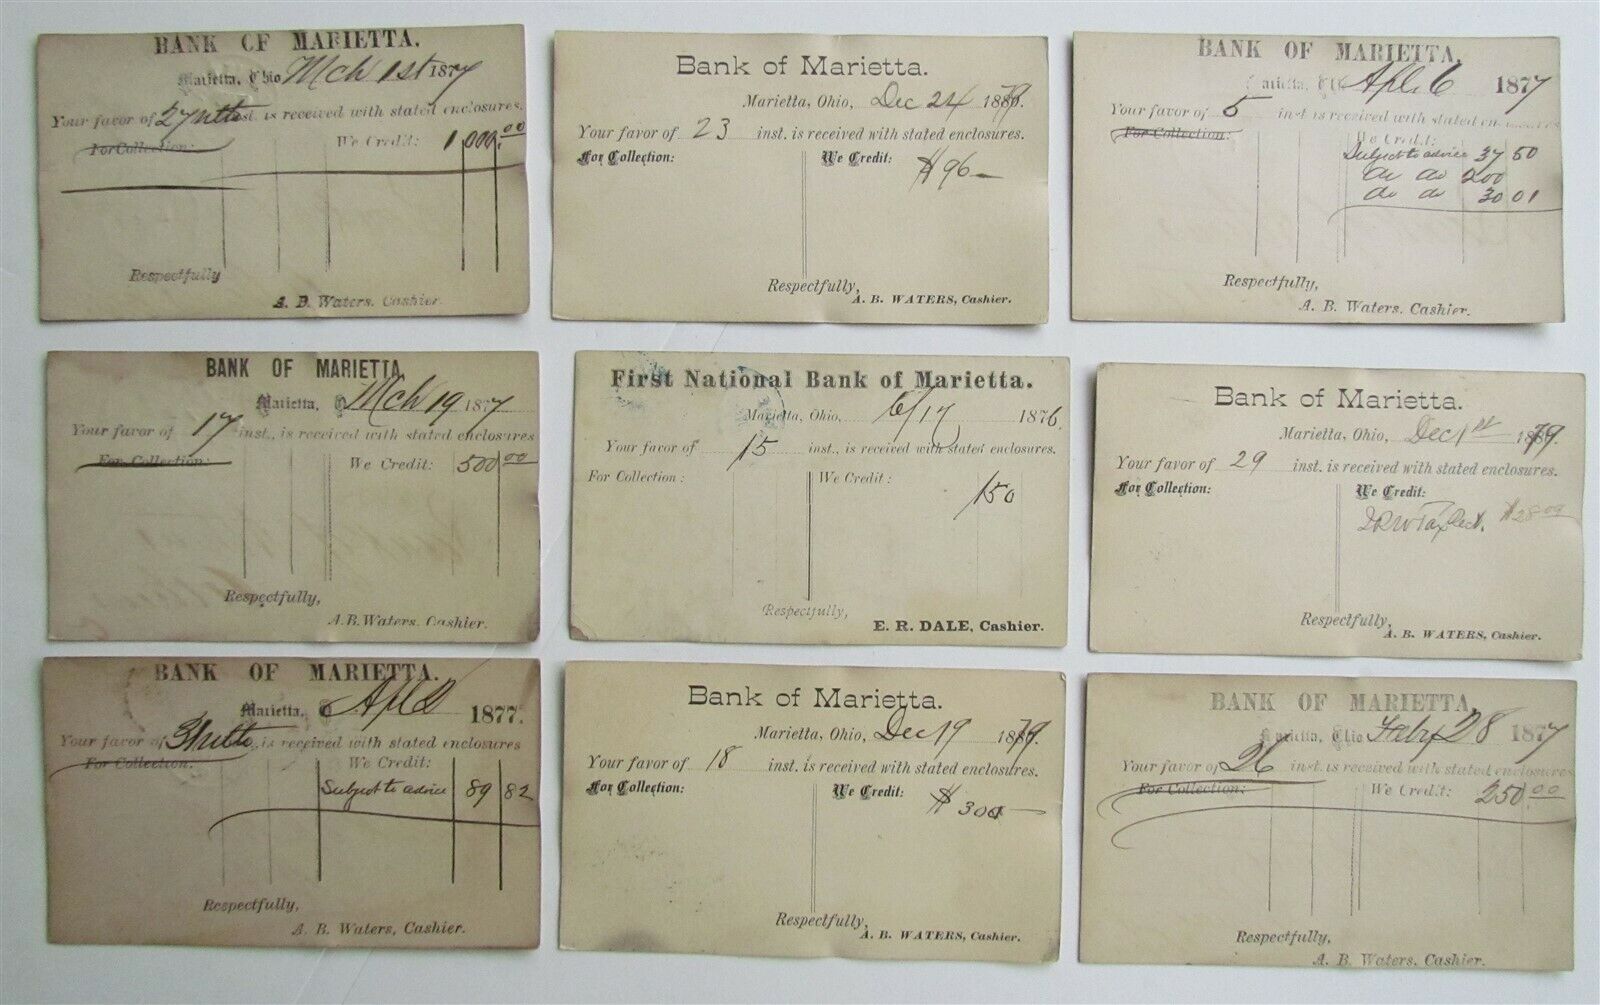 BANK OF MARIETTA.
Marietta, Ohio Mch 1st 1877
Your favor of 27 inst. is received with stated enclosures.
For Collection: We Credit: 1 000.00
Respectfully
A. B. Waters. Cashier.
Bank of Marietta.
Marietta, Ohio, Dec 24 1879.
Your favor of 23 inst. is received with stated enclosures.
For Collection: We Credit: $96—
Respectfully,
A. B. WATERS, Cashier.
BANK OF MARIETTA.
Marietta, Ohio Apl. 6 1877
Your favor of 5 inst is received with stated en
For Collection: We Credit:
Subject to advice 37 50
do do 200
do do 30 01
Respectfully,
A. B. Waters. Cashier.
BANK OF MARIETTA.
Marietta, Mch 19 1877
Your favor of 17 inst., is received with stated enclosures
For Collection: We Credit: 500 00
Respectfully,
A. B. Waters. Cashier.
First National Bank of Marietta.
Marietta, Ohio, 6/17 1876.
Your favor of 15 inst., is received with stated enclosures.
For Collection: We Credit:
150
Respectfully,
E. R. DALE, Cashier.
Bank of Marietta.
Marietta, Ohio, Dec 1st 1879.
Your favor of 29 inst. is received with stated enclosures.
For Collection: We Credit:
$28 00
Respectfully,
A. B. WATERS, Cashier.
BANK OF MARIETTA.
Marietta, Apl 1877.
Your favor of is received with stated enclosures
For Collection: We Credit:
Subject to advice 89 82
Respectfully,
A. B. Waters, Cashier.
Bank of Marietta.
Marietta, Ohio, Dec 19 1879.
Your favor of 18 inst. is received with stated enclosures.
For Collection: We Credit: $300—
Respectfully,
A. B. WATERS, Cashier.
BANK OF MARIETTA.
Marietta, Ohio Feby 28 1877
Your favor of 26 inst. is received with stated enclosures
For Collection: We Credit: 250.00
Respectfully,
A. B. Waters. Cashier.